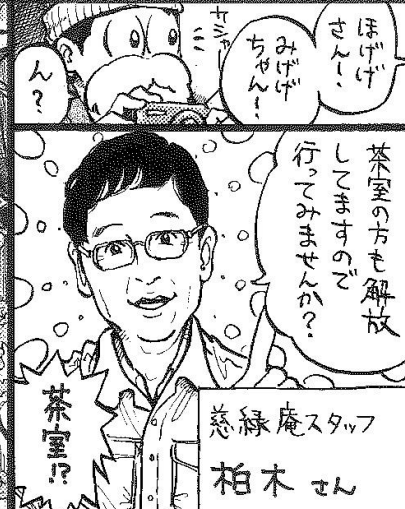 ほげげ
さん！
みげげ
ちゃん！
ケシャー
ん？
茶室の方も解放
してますので
行ってみませんか？
茶室!?
慈緑庵スタッフ
柏木さん